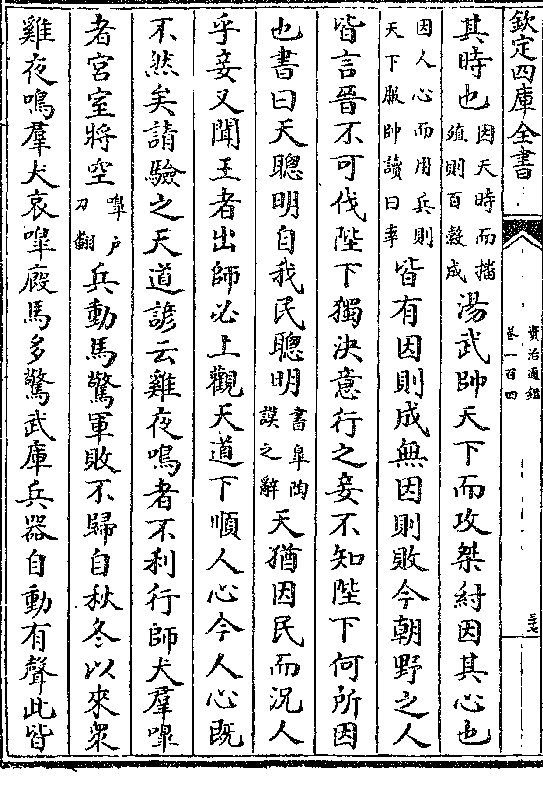 欽定四庫全書
資治通鑑
卷一百四
三十七
其時也因天時而播殖則百穀成湯武帥天下而攻桀紂因其心也
因人心而用兵則天下服帥讀曰率皆有因則成無因則敗今朝野之人
皆言晉不可伐陛下獨決意行之妾不知陛下何所因
也書曰天聰明自我民聰明書臯陶謨之辭天猶因民而況人
乎妾又聞王者出師必上觀天道下順人心今人心既
不然矣請驗之天道諺云雞夜鳴者不利行師犬羣嘷
者宮室將空嘷户刀翻兵動馬驚軍敗不歸自秋冬以來衆
雞夜鳴羣犬哀嘷廐馬多驚武庫兵器自動有聲此皆